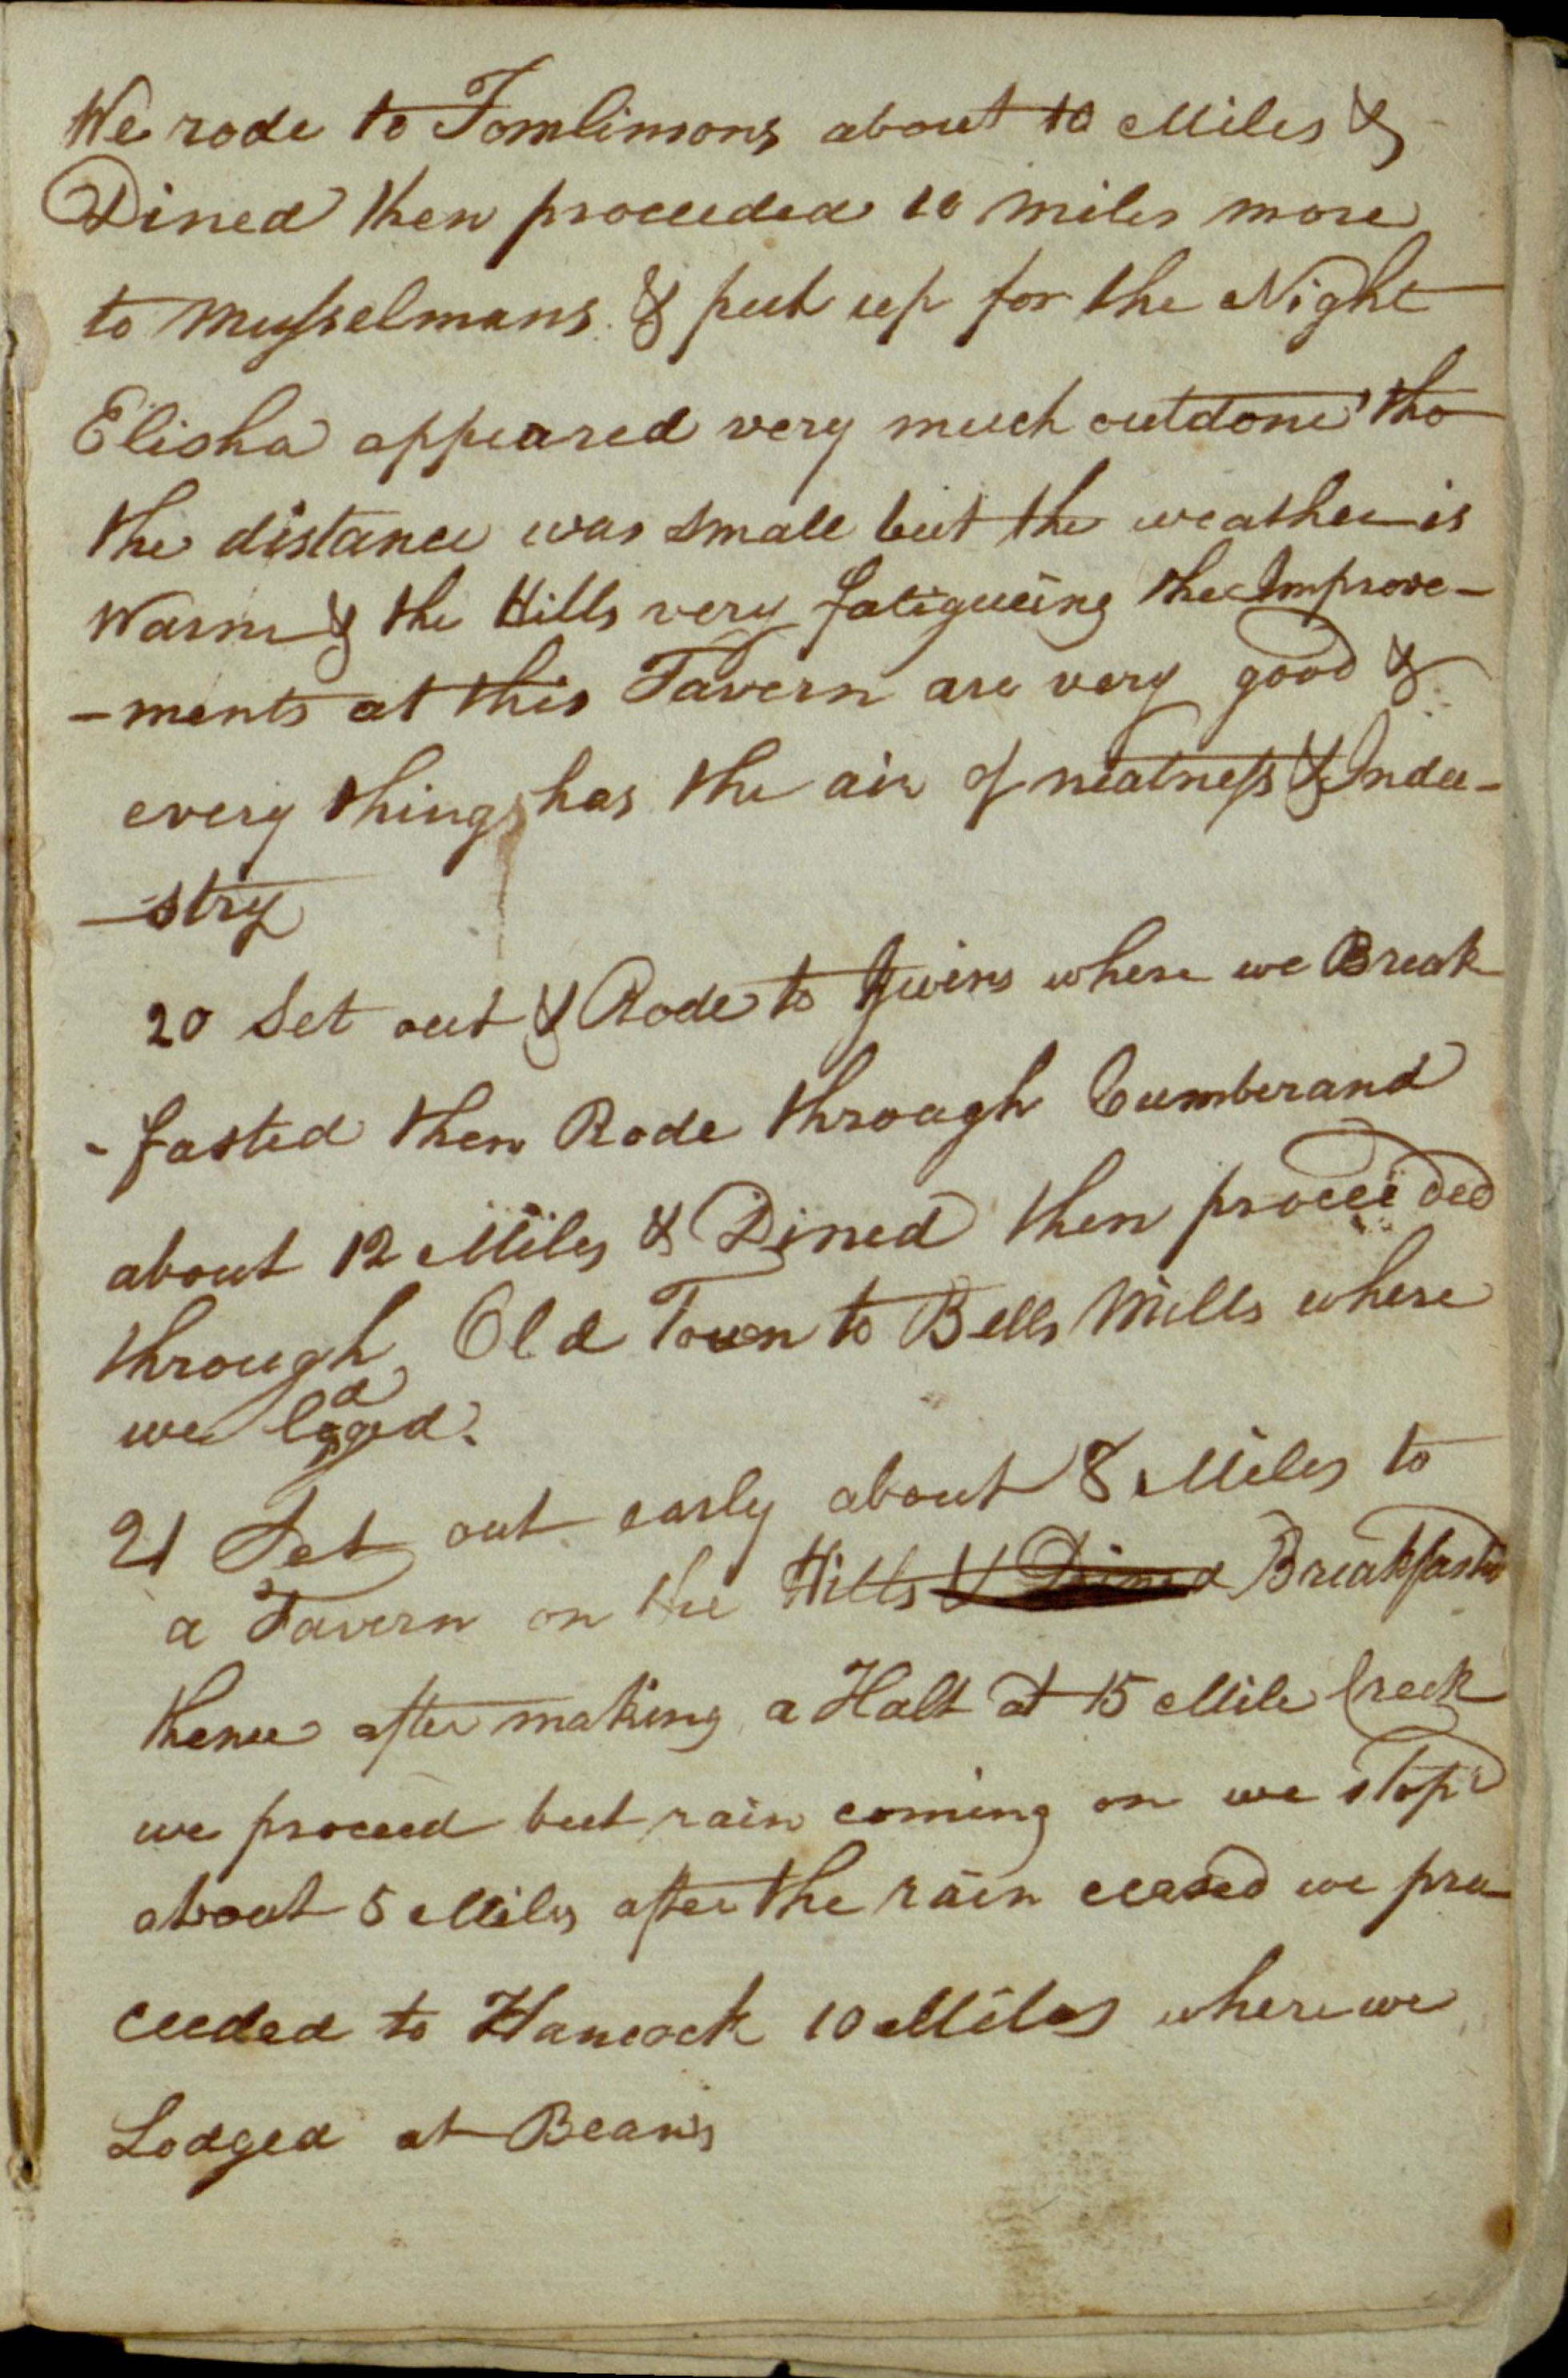 We rode to Tomlinsons about 10 Miles &
Dined then proceeded 10 miles more
to Musselmans & put up for the Night
Elisha appeared very much outdone tho
the distance was small but the weather is
Warm & the Hills very fatigueing the Improve-
-ments at this Tavern are very good &
every things has the air of neatness & Indu-
-stry
20 Set out & Rode to Gwins where we Break
-fasted then Rode through Cumberand
about 12 Miles & Dined then proceeded
through Old Town to Bells Mills where
we lodged.
21 Set out early about 8 Miles to
a Tavern on the Hills & Dined Breakfasted
thence after making a Halt at 15 Mile Creek
we proceed but rain coming on we stopd
about 5 Miles after the rain ceased we pro-
ceeded to Hancock 10 Miles where we
Lodged at Beans